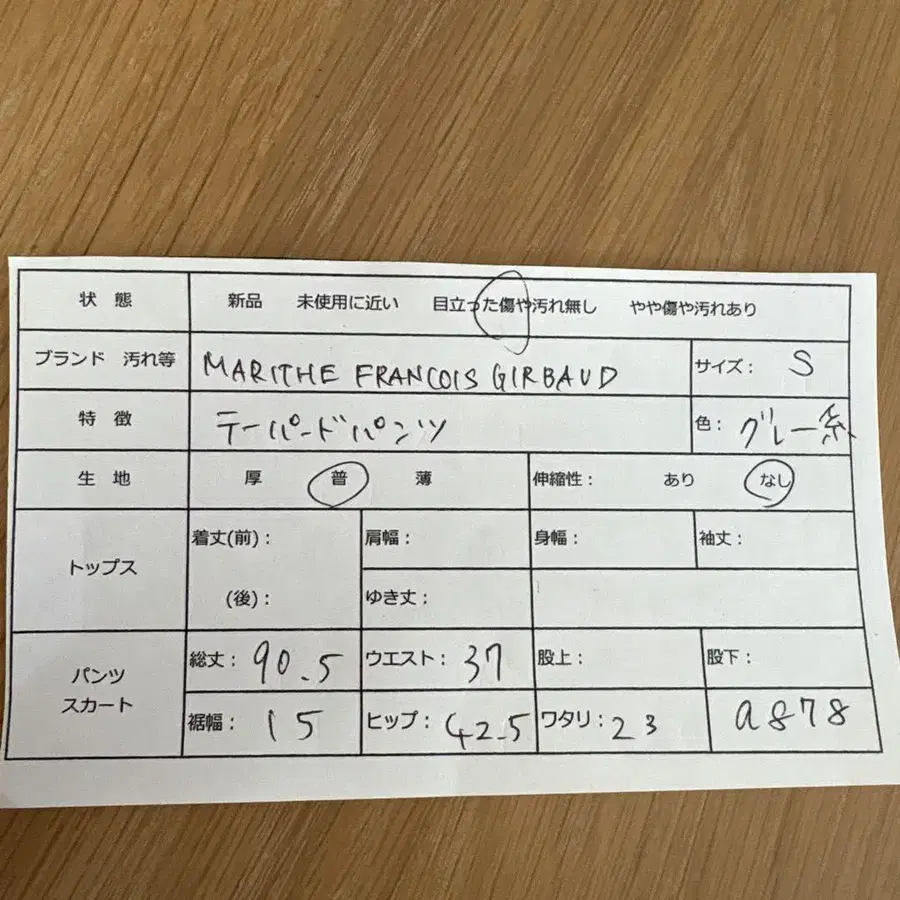 状 態 新品 未使用に近い 目立った傷や汚れ無し やや傷や汚れあり
ブランド 汚れ等 MARITHE FRANCOIS GIRBAUD サイズ: S
特 徴 テーパードパンツ 色: グレー系
生 地 厚 普 薄 伸縮性: あり なし
トップス 着丈(前): 肩幅: 身幅: 袖丈:
(後): ゆき丈:
パンツ スカート 総丈: 90.5 ウエスト: 37 股上: 股下:
裾幅: 15 ヒップ: 42.5 ワタリ: 23 a878